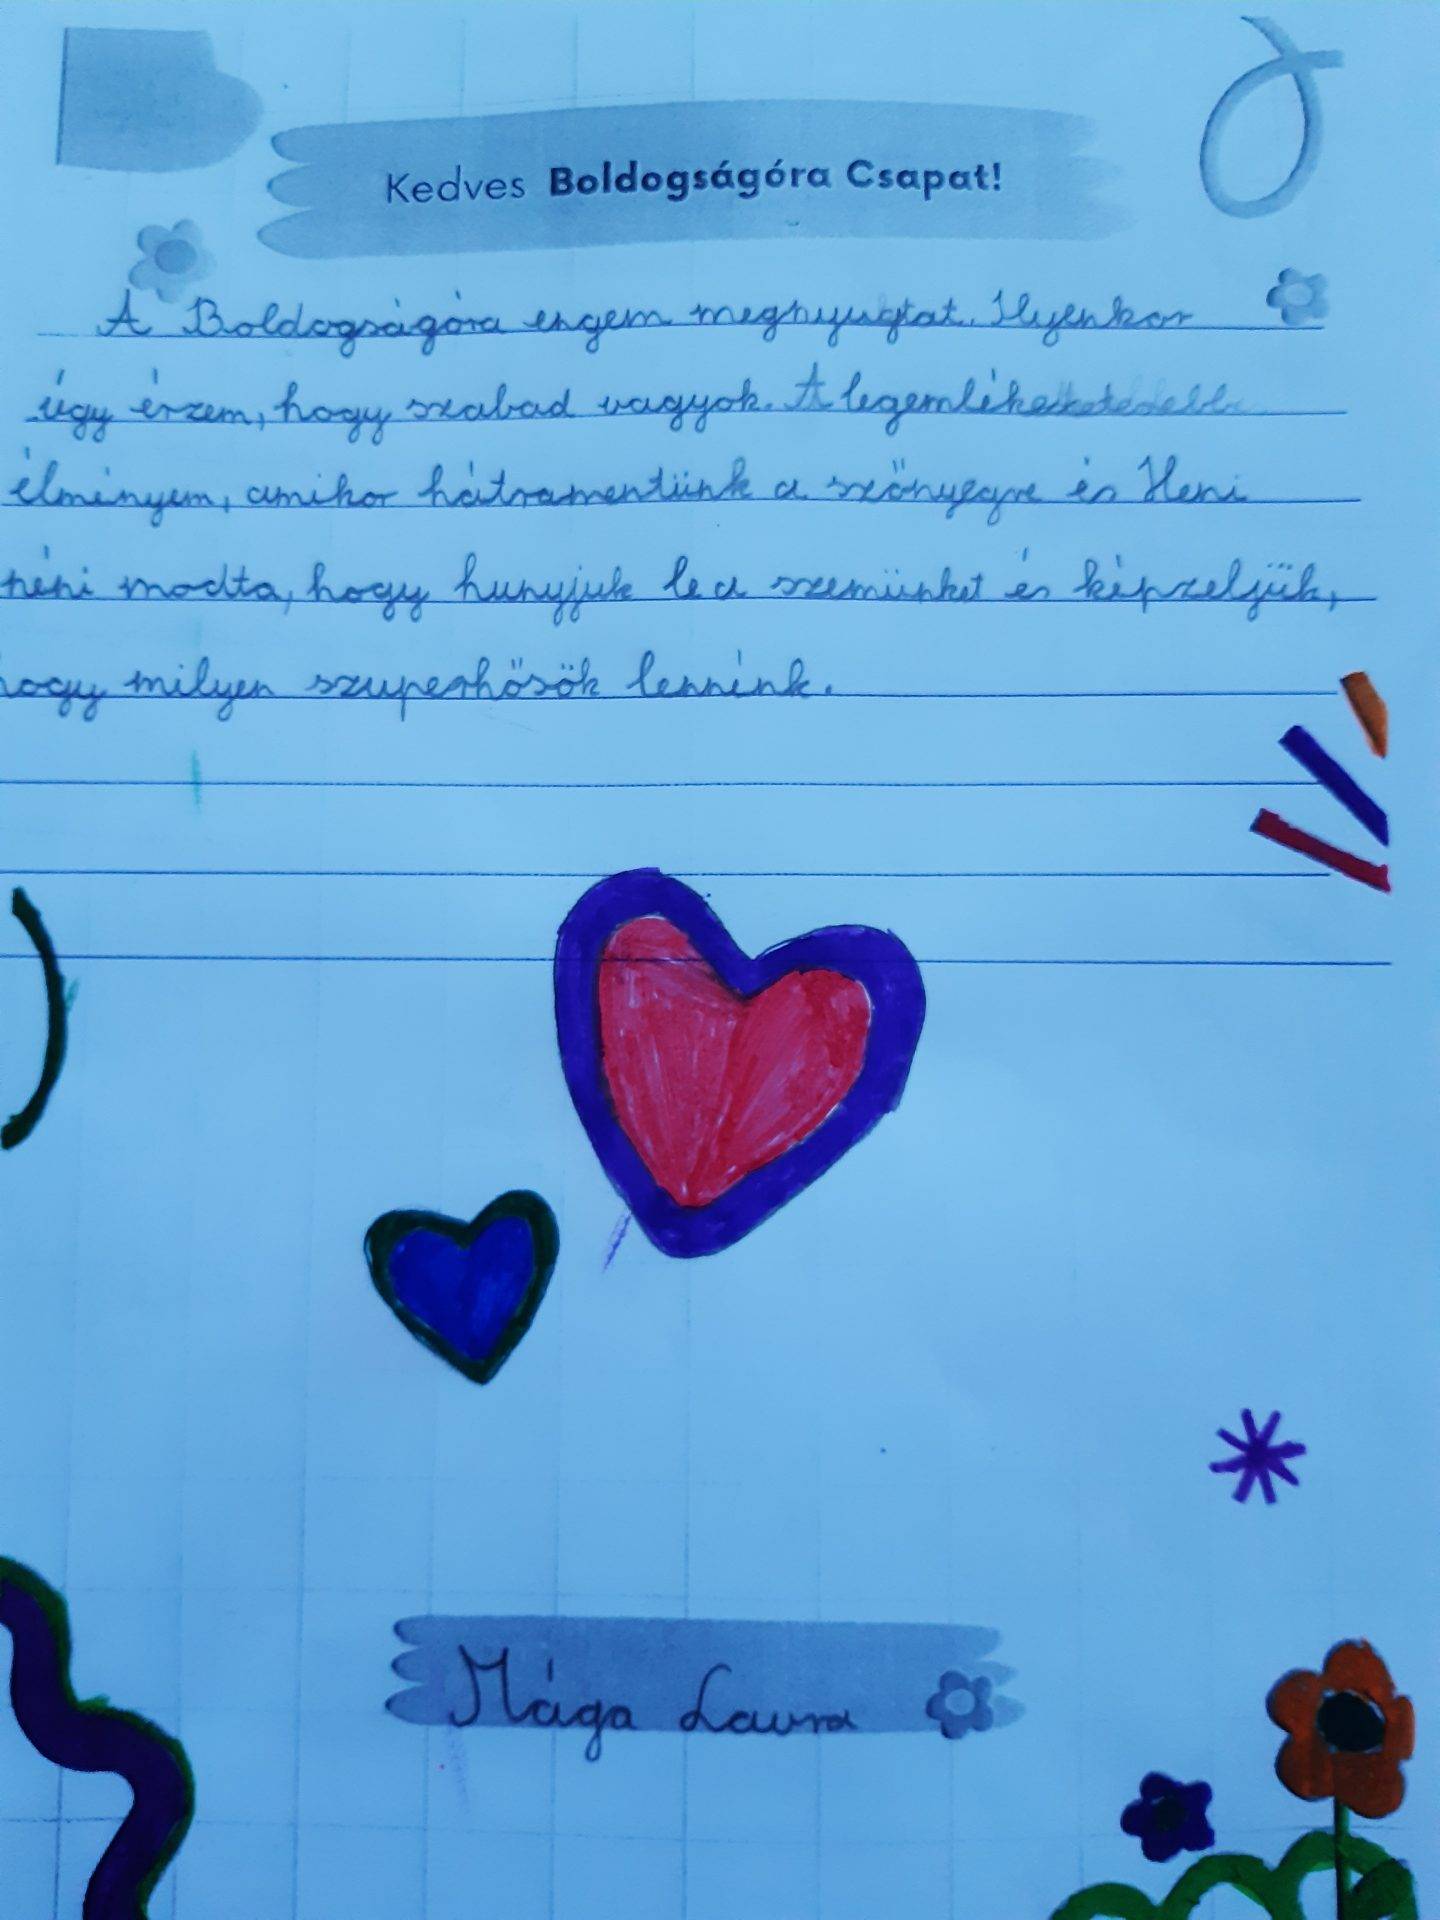 Kedves Boldogságóra Csapat!
A Boldogságóra engem megnyugtat. Ilyenkor
úgy érzem, hogy szabad vagyok. A legemlékezetesebb
élményem, amikor hátramentünk a szőnyegre és Heni
néni modta, hogy hunyjuk le a szemünket és képzeljük,
hogy milyen szuperhősök lennénk.
Mága Laura